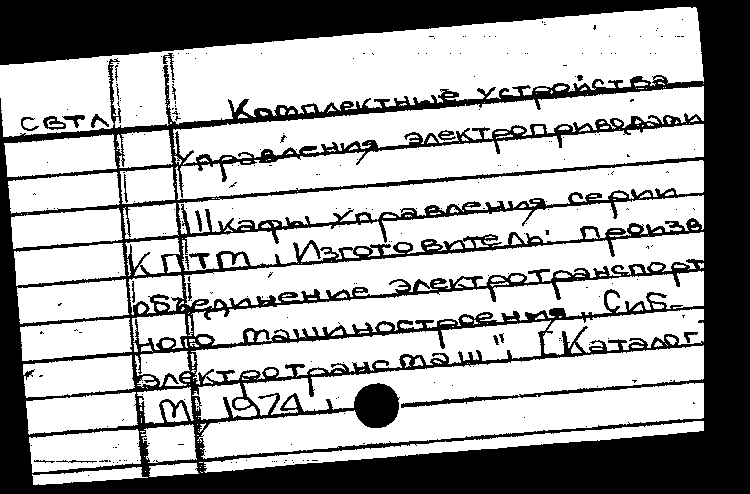 СВТЛ Комплектные устройства
управления электроприводами
Шкафы управления серии
КПТМ. Изготовитель: произв
объединение электротранспорт
ного машиностроения „Сиб-
электротрансмаш". [Каталог.
М. 1974.